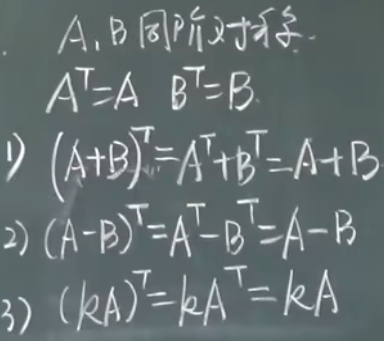 A、B同阶对称.
Aᵀ=A Bᵀ=B.
1) (A+B)ᵀ=Aᵀ+Bᵀ=A+B
2) (A-B)ᵀ=Aᵀ-Bᵀ=A-B
3) (kA)ᵀ=kAᵀ=kA